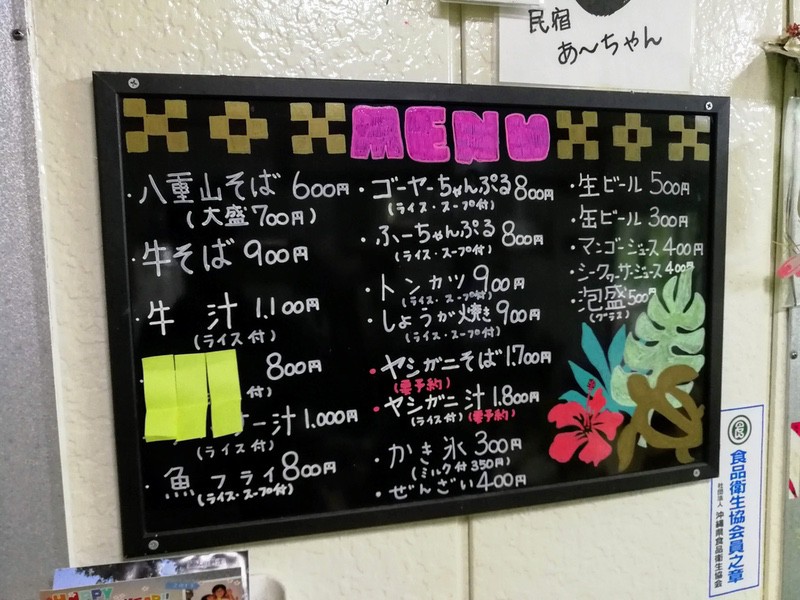 民宿
あ〜ちゃん
MENU
・八重山そば 600円
(大盛700円)
・牛そば 900円
・牛 汁 1.100円
(ライス付)
800円
付)
ー汁 1.000円
(ライス付)
・魚フライ 800円
(ライス・スープ付)
・ゴーヤーちゃんぷる 800円
(ライス・スープ付)
・ふーちゃんぷる 800円
(ライス・スープ付)
・トンカツ 900円
(ライス・スープ付)
・しょうが焼き 900円
(ライス・スープ付)
・ヤシガニそば 1.700円
(要予約)
・ヤシガニ汁 1.800円
(ライス付)(要予約)
・かき氷 300円
(ミルク付350円)
・ぜんざい 400円
・生ビール 500円
・缶ビール 300円
・マンゴージュース 400円
・シークヮーサージュース 400円
・泡盛 500円
(グラス)
食品衛生協会員之章
社団法人 沖縄県食品衛生協会